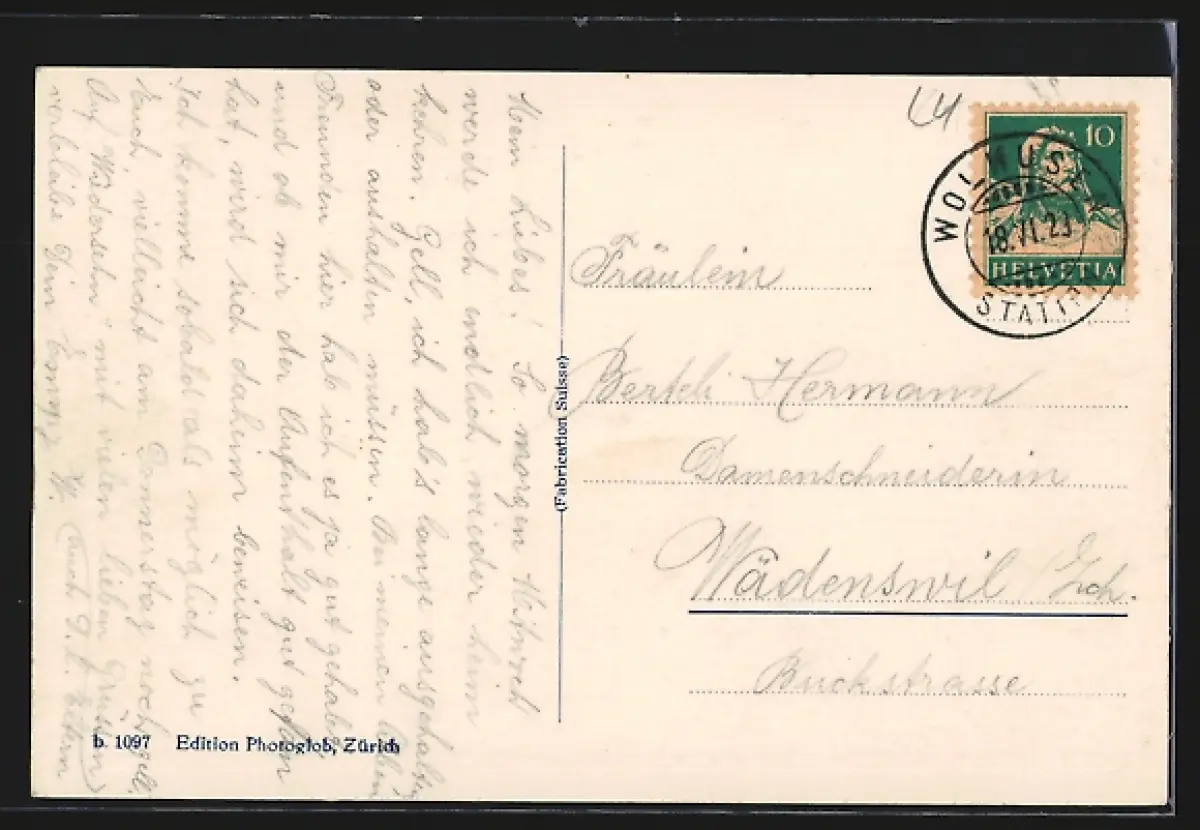 Mein Liebes! So morgen Mittwoch
werde ich endlich wieder heim
kehren. Gell, ich hab's lange ausgehalten
oder aushalten müssen. Bei meinen lieben
Freunden hier hab ich es ja gut gehabt
und ob mir der Aufenthalt gut getan
hat, wird sich daheim beweisen.
Ich komme sobald als möglich zu
Euch, vielleicht am Donnerstag noch, gell.
Auf "Wiedersehn" mit vielen lieben Grüssen
verbleibe Dein
b. 1097 Edition Photoglob, Zürich
(Fabrication Suisse)
L4
10
HELVETIA
WOLHUSEN
18.VI.23
STATION
Fräulein
Berteli Hermann
Damenschneiderin
Wädenswil Zch.
Buckstrasse